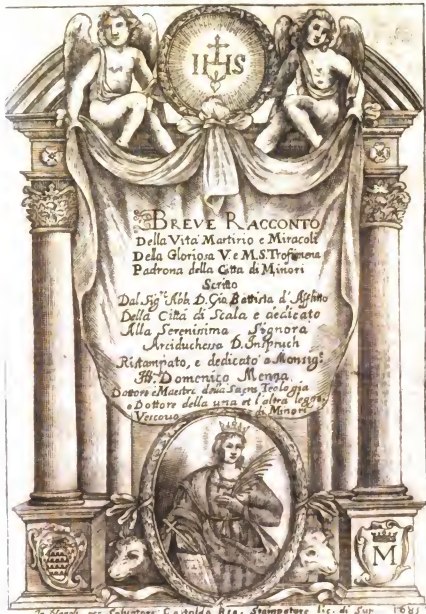 IHS
BREVE RACCONTO
Della Vita Martirio e Miracoli
Della Gloriosa V. e M. S. Trofimena
Padrona della Citta di Minori
Scritto
Dal Sig.r Abb. D. Gio Battista d' Afflitto
Della Città di Scala e dedicato
Alla Serenisima Signora
Arciduchessa D. Inspruch
Ristampato, e dedicato a Monsig.r
Domenico Menna
Dottore e Maestro della Sacra Teologia
e Dottore della una et l'altra legge,
Vescovo di Minori
M
In Napoli per Salvatore Castaldo Reg. Stampatore lic. di Sup.